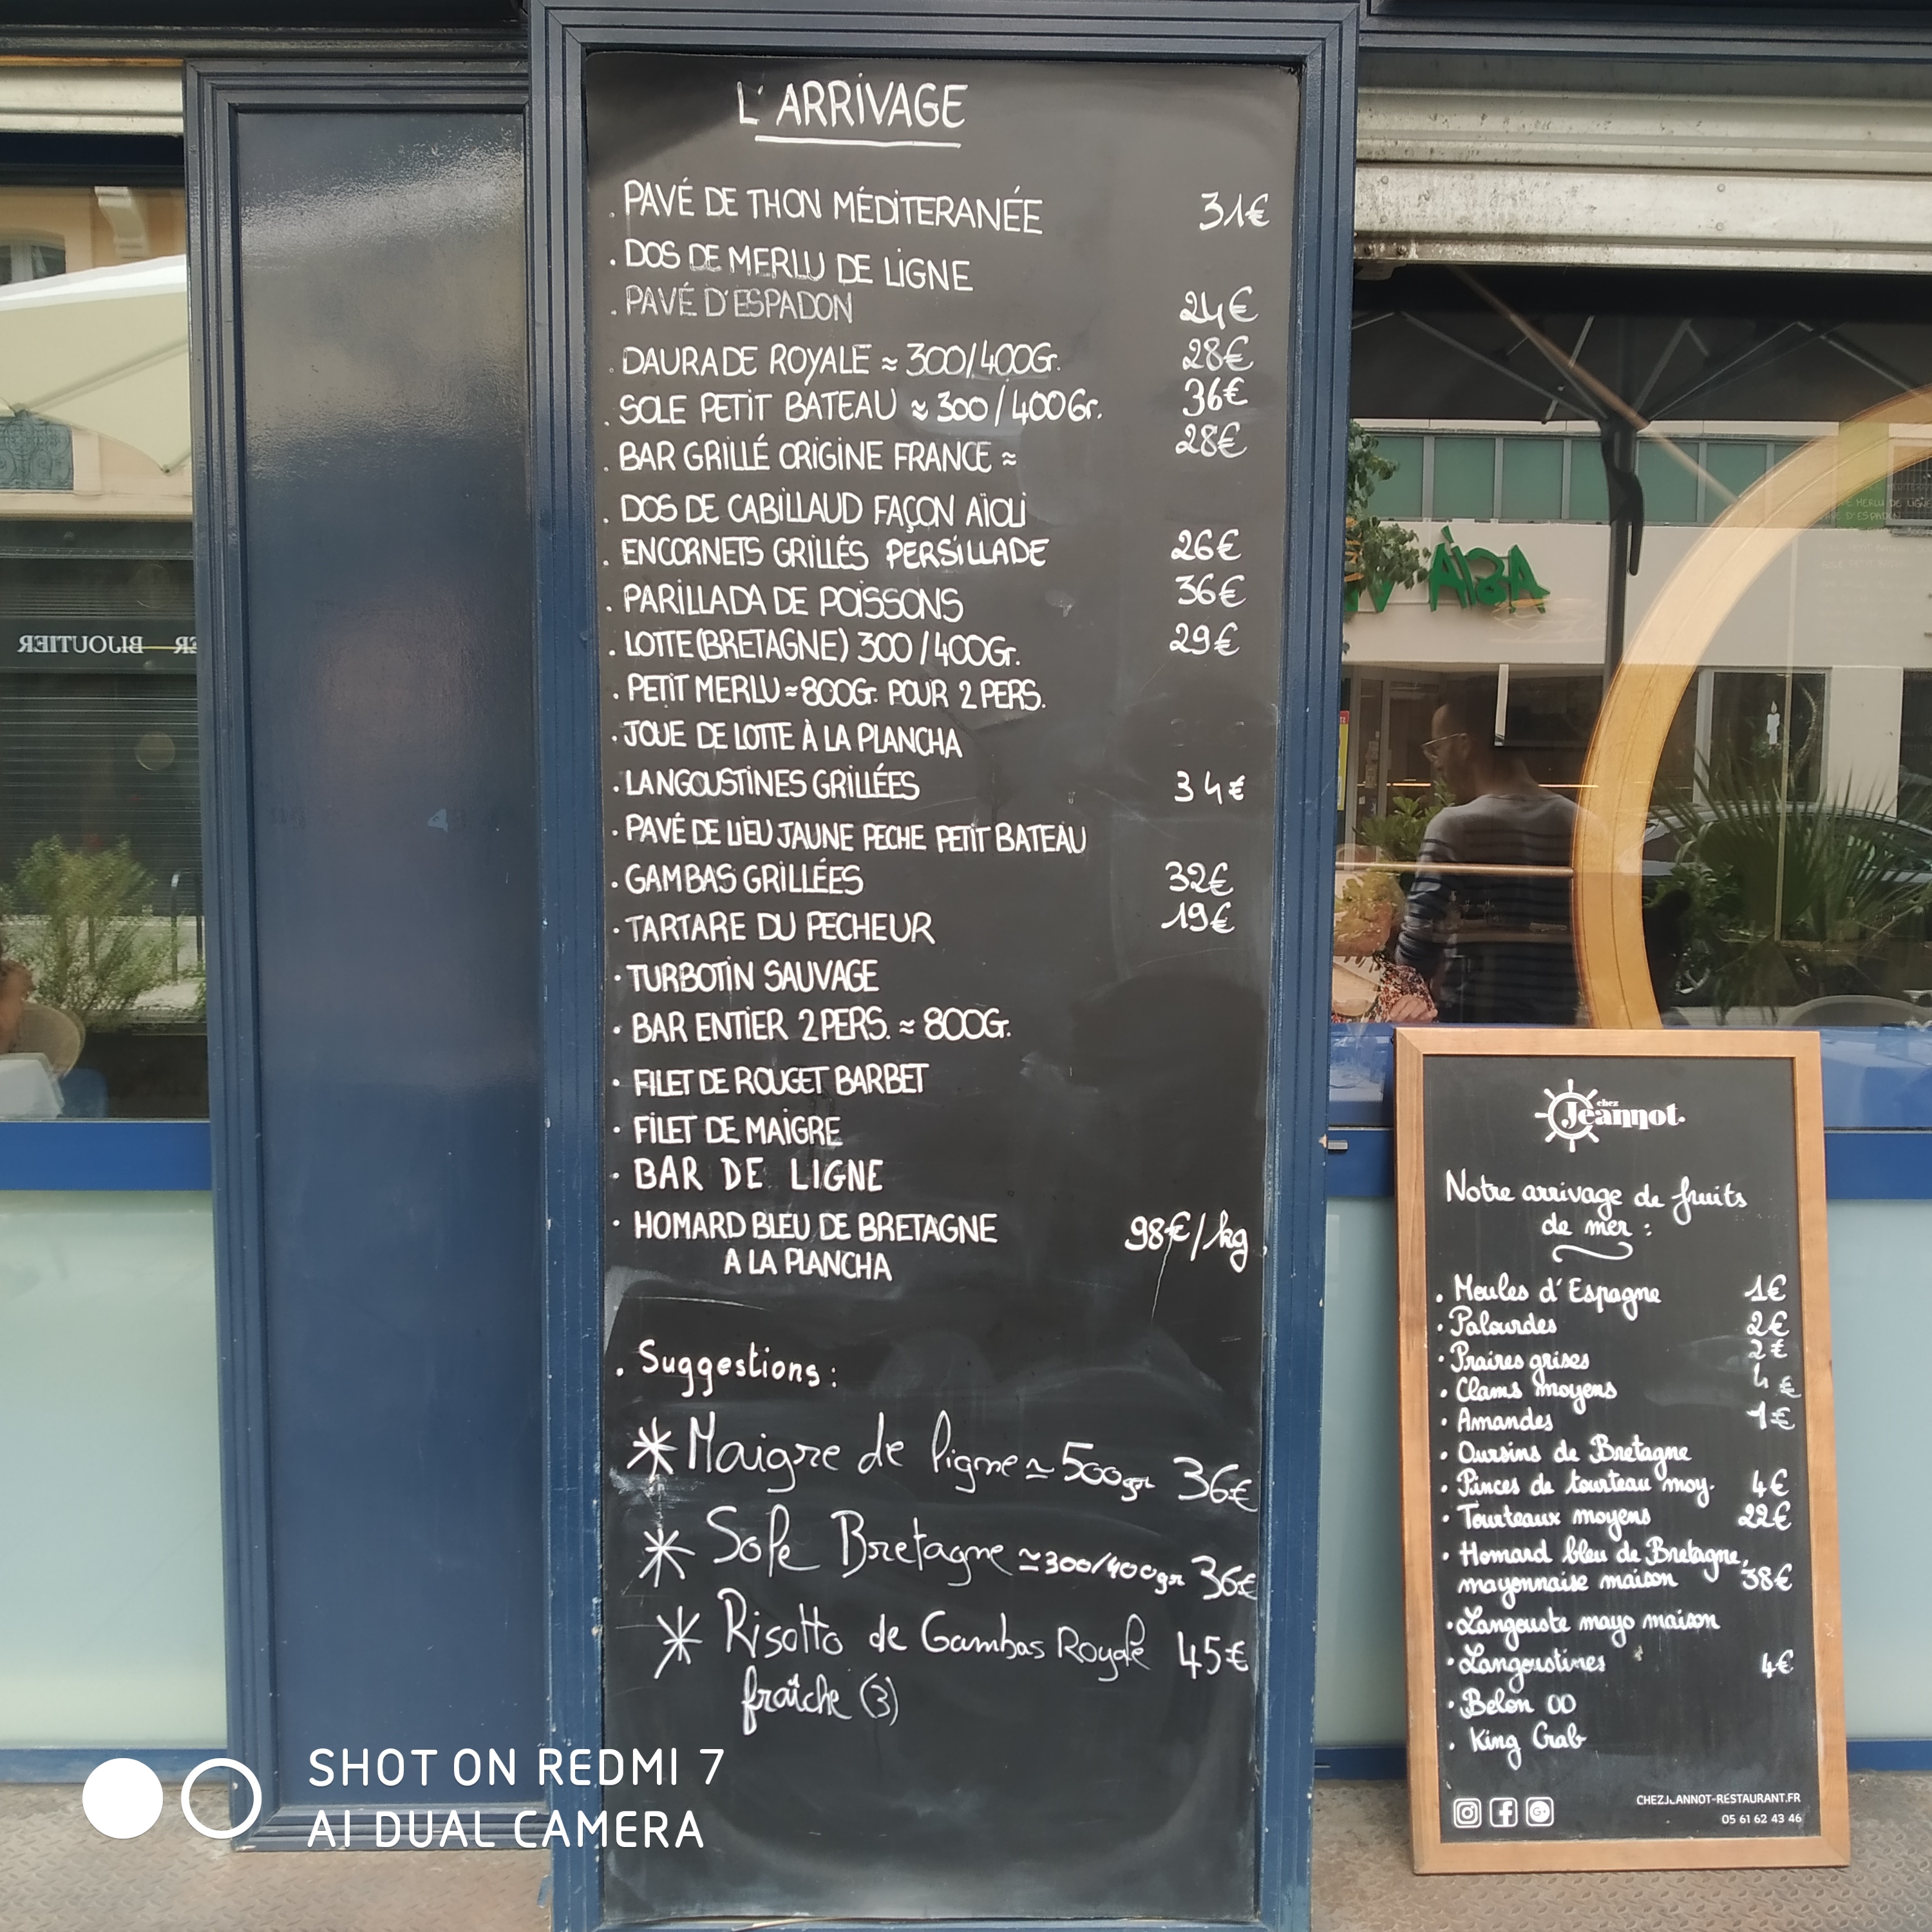 L'ARRIVAGE
. PAVÉ DE THON MÉDITERANÉE 31€
. DOS DE MERLU DE LIGNE
. PAVÉ D'ESPADON 24€
. DAURADE ROYALE ≈ 300/400Gr. 28€
. SOLE PETIT BATEAU ≈ 300/400Gr. 36€
. BAR GRILLÉ ORIGINE FRANCE ≈ 28€
. DOS DE CABILLAUD FAÇON AÏOLI
. ENCORNETS GRILLÉS PERSILLADE 26€
. PARILLADA DE POISSONS 36€
. LOTTE (BRETAGNE) 300/400Gr. 29€
. PETIT MERLU ≈ 800Gr. POUR 2 PERS.
. JOUE DE LOTTE À LA PLANCHA
. LANGOUSTINES GRILLÉES 34€
. PAVÉ DE LIEU JAUNE PECHE PETIT BATEAU
. GAMBAS GRILLÉES 32€
. TARTARE DU PECHEUR 19€
. TURBOTIN SAUVAGE
. BAR ENTIER 2 PERS. ≈ 800Gr.
. FILET DE ROUGET BARBET
. FILET DE MAIGRE
. BAR DE LIGNE
. HOMARD BLEU DE BRETAGNE 98€/kg.
A LA PLANCHA
. Suggestions :
* Maigre de ligne ≃ 500gr 36€
* Sole Bretagne ≃ 300/400gr 36€
* Risotto de Gambas Royale 45€
fraîche (3)
chez
Jeannot.
Notre arrivage de fruits
de mer :
. Moules d'Espagne 1€
. Palourdes 2€
. Praires grises 2€
. Clams moyens 4€
. Amandes 1€
. Oursins de Bretagne
. Pinces de tourteau moy. 4€
. Tourteaux moyens 22€
. Homard bleu de Bretagne,
mayonnaise maison 38€
. Langouste mayo maison
. Langoustines 4€
. Belon 00
. King Crab
CHEZJEANNOT-RESTAURANT.FR
05 61 62 43 46
BIJOUTIER
AÏBA
SHOT ON REDMI 7
AI DUAL CAMERA